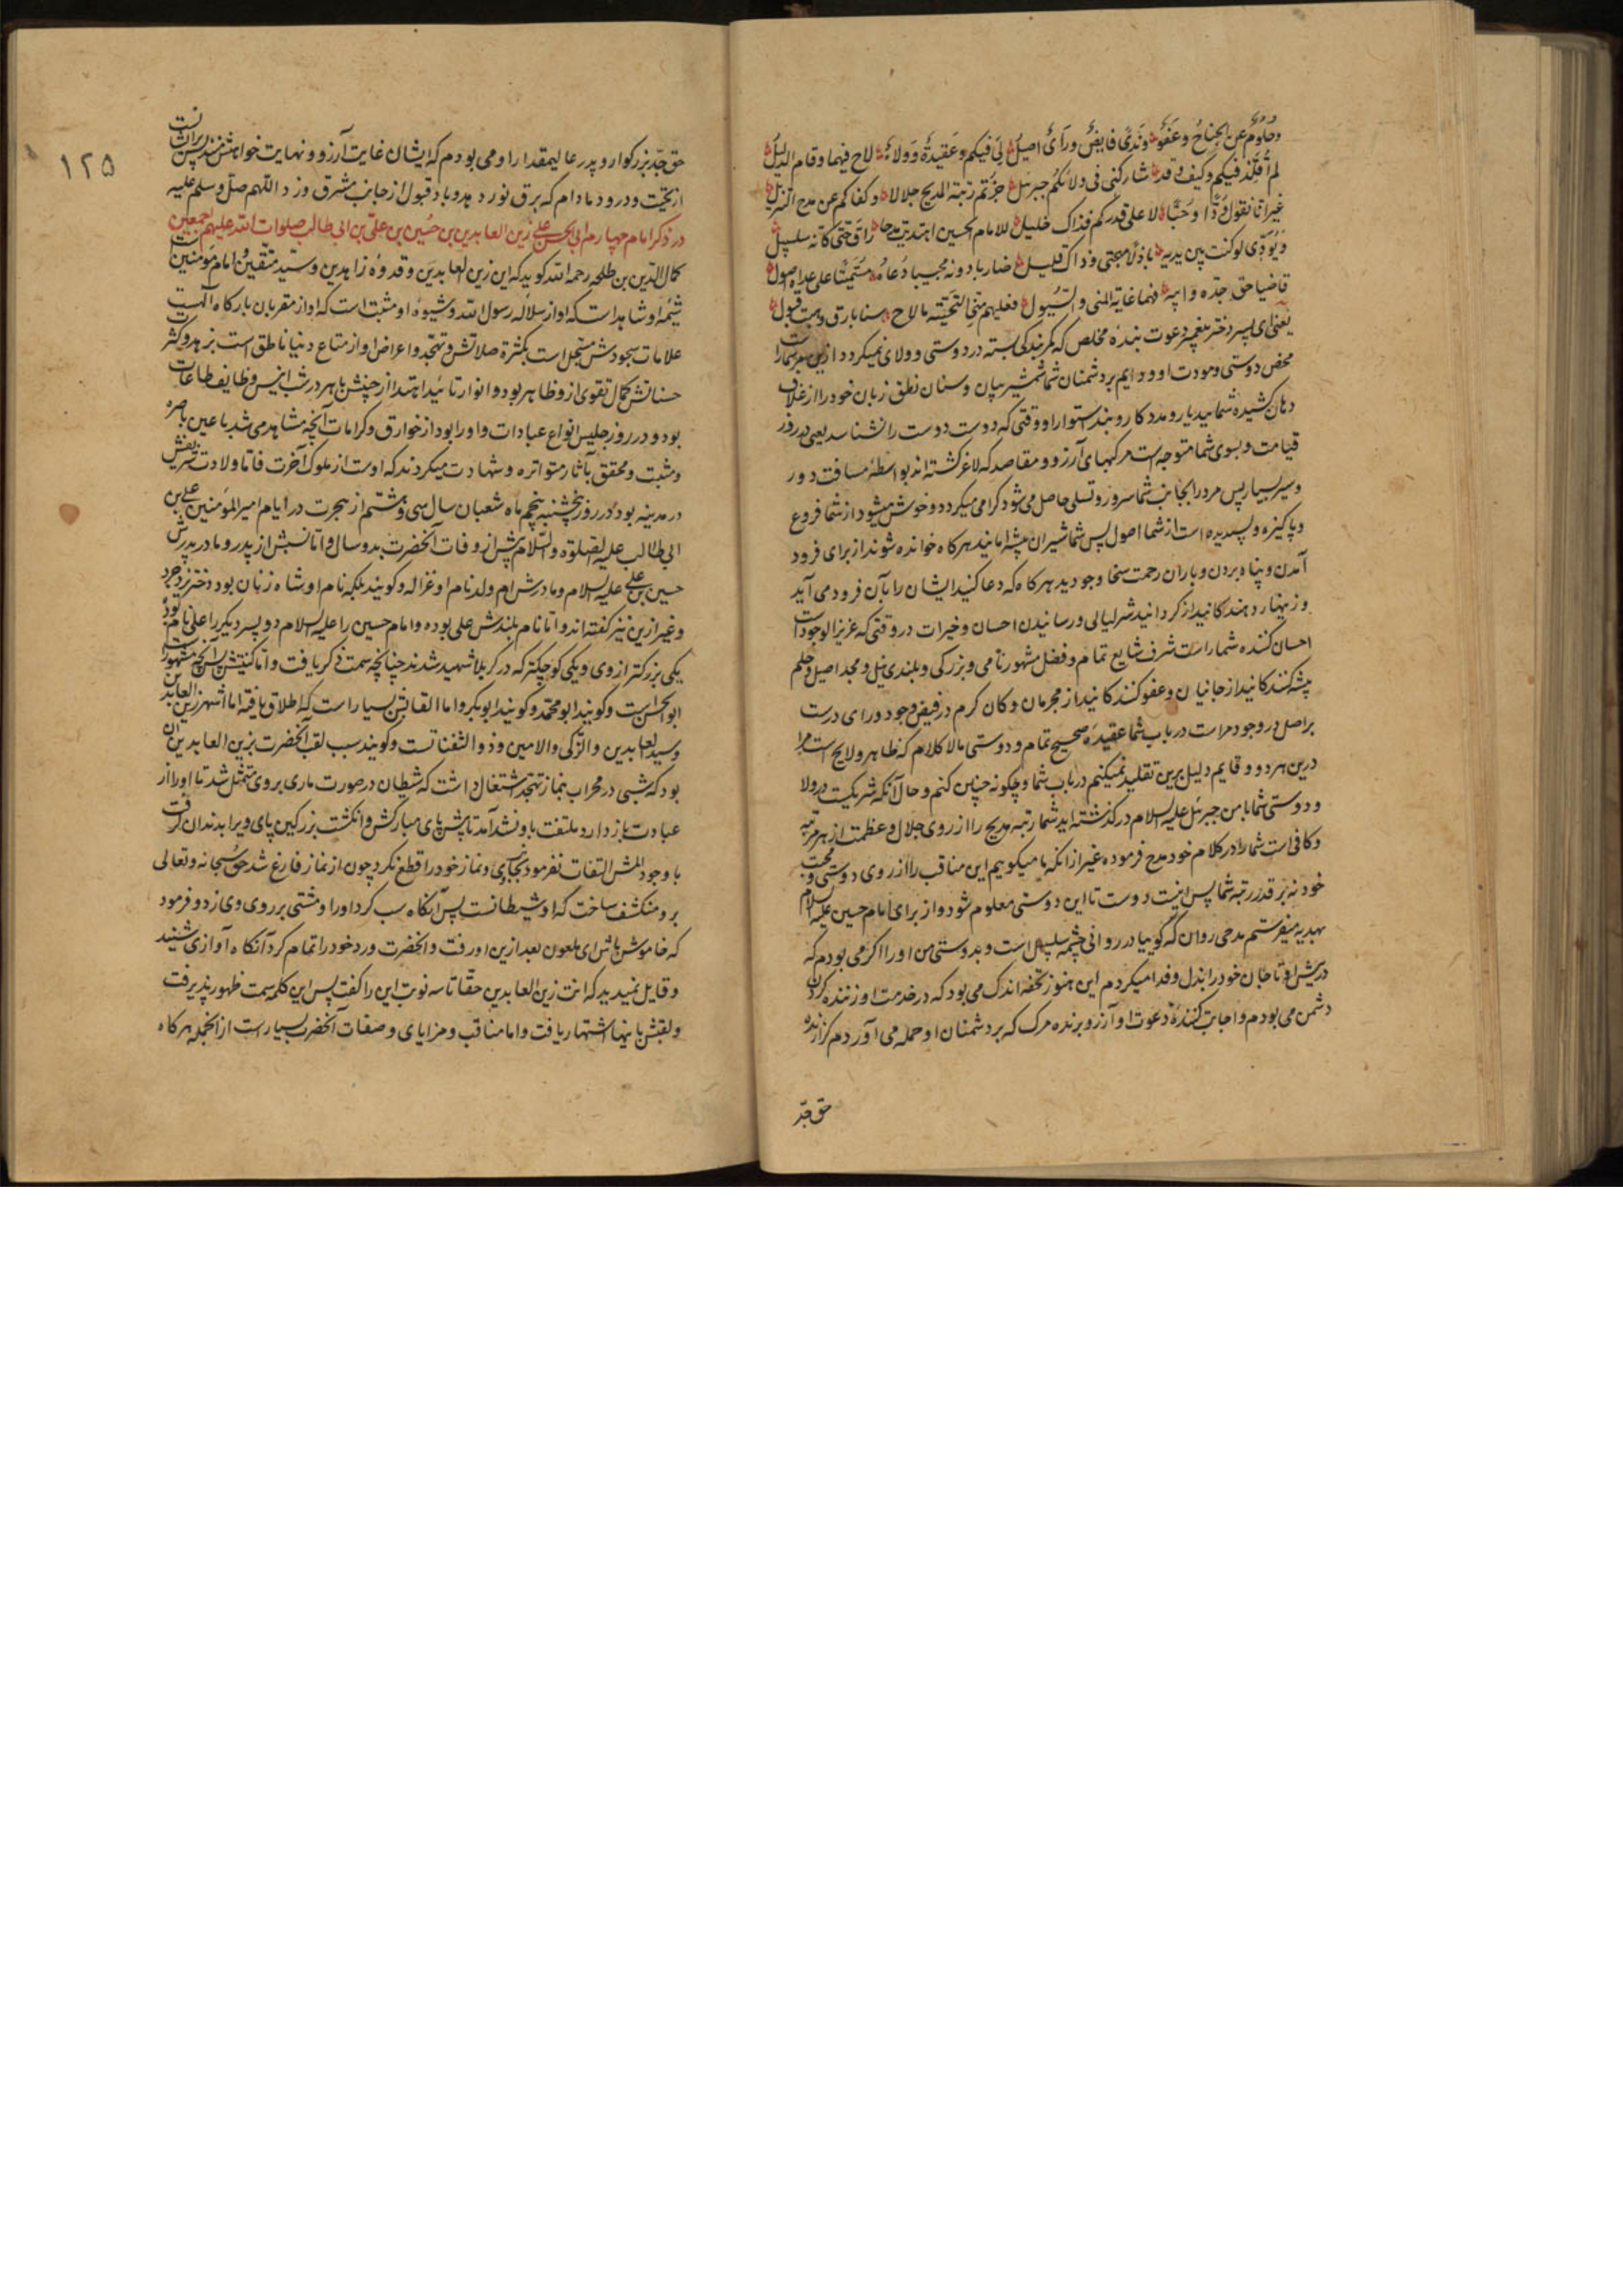 وحلوم عن الجناح وعفو وندی فایض ورأی اصیل لی فیکم وعقیدة وولاء لاح فیها وقام الدلیل
لم اقلد فیکم وکیف وقد شارکنی فی ولائکم جبرئل جزتم رتبة المدیح جلالا وکفاکم عن مدح التنزیل
غیر انا نقول ودا وحبا لا علی قدرکم فذاک خلیل للامام الحسین اهدیت مدحا راق حتی کانه سلسبیل
وبودی لو کنت بین یدیه باذلا مهجتی وذاک قلیل ضاربا دونه مجیبا دعاه مستمیتا علی عداه اصول
قاضیا حق جده وابیه فهما غایة المنی والسؤل فعلیهم منی التحیة ما لاح سنا بارق وهبت قبول
یعنی ای پسر دختر پیغمبر دعوت بندهٔ مخلص که کمر بندگی بسته در دوستی وولای نمیکردد ازین مر شمارا
محض دوستی ومودت او وداریم بر دشمنان شما شمشیر بیان وسنان نطق زبان خود را از غلاف
دهان کشیده شمائید یار ومددکار وبند استوار او وقتی که دوست دوست را نشناسد یعنی در روز
قیامت وبسوی شما متوجه است مرکبهای آرزو ومقاصد که لاغر کشته اند بواسطهٔ مسافت دور
وسیر بسیار پس مرو را بجانب شما سرور وتسلی حاصل می شود کرامی میکردد وخوش میشود از شما فروع
وپاکیزه وپسندیده است از شما اصول پس شما شیران بیشه اماناید هرکاه خوانده شوند از برای فرود
آمدن وپناه بردن وباران رحمت سخا وجودید هرکاه که دعا کنید ایشان را بآن فرود می آید
وزینهار دهندکانید از کردانید شر لیالی ورسانیدن احسان وخیرات در وقتی که عزیز الوجودست
احسان کننده شماراست شرف شایع تمام وفضل مشهور نامی وبزرکی وبلندی نیل ومجد اصیل وحلم
پیشه کنندکانید از جانیان وعفو کنندکانید از مجرمان وکان کرم در فیض وجود ورای درست
براصل در وجود مراست در باب شما عقیدهٔ صحیح تمام ودوستی مالاکلام که ظاهر ولایح است مرا
درین هردو وقایم دلیل برین تقلید نمیکنم در باب شما وچکونه چنین کنم وحال آنکه شریکست در ولا
ودوستی شما با من جبرئل علیه السلام درکذشته اید شما رتبه مدیح را از روی جلال وعظمت از هر مرتبه
وکافی است شما را در کلام خود مدح فرموده غیر از انکه ما میکوییم این مناقب را از روی دوستی ومحبت
خود نه بر قدر رتبه شما پس اینست دوست تا این دوستی معلوم شود واز برای امام حسین علیه السلام
بهدیه میفرستم مدحی روان که کوییا در روانی چشمه سلسبیل است وبدوستی من او را اکر می بودم که
در پیش او تا جان خود را بذل وفدا میکردم این هنوز تحفه اندک می بود که در خدمت او زننده کردن
دشمن می بودم واجابت کنندهٔ دعوت او آرزو برنده مرک که بر دشمنان او حمله می آوردم کزارنده
حق جد
۱۲۵
حق جد بزرکوار وپدر عالیمقدار او می بودم که ایشان غایت آرزو ونهایت خواهش مند پس بر ایشانست
از تحیت ودرود مادام که برق نور دهد وباد قبول از جانب مشرق وزد اللهم صل وسلم علیه
در ذکر امام چهارم ابی الحسن علی زین العابدین بن حسین بن علی بن ابی طالب صلوات الله علیهم اجمعین
کمال الدین بن طلحه رحمه الله کوید که این زین العابدین وقدوهٔ زاهدین وسید متقین وامام مؤمنین است
شیمهٔ او شاهد است که او از سلالهٔ رسول الله وشیوهٔ او مثبت است که او از مقربان بارکاه اله است
علامات سجودش مسجل است بکثرة صلاتش وتهجد واعراض او از متاع دنیا ناطق است بزهد وکثر
حسناتش کمال تقوی از و ظاهر بود وانوار تائید اهتدا از جبینش باهر در شب انیس وظایف طاعات
بود ودر روز جلیس انواع عبادات واورا بود از خوارق وکرامات آنچه مشاهد می شد باعین باصره
ومثبت ومحقق بآثار متواتره وشهادت میکردند که اوست از ملوک آخرت فاما ولادت شریفش
در مدینه بود در روز پنجشنبه پنجم ماه شعبان سال سی وهشتم از هجرت در ایام امیر المؤمنین علی بن
ابی طالب علیه الصلوة والسلام پیش از وفات آنحضرت بدو سال واما نسبش از پدر ومادر پدرش
حسین بن علی علیه السلام ومادرش ام ولد نام او غزاله وکویند بلکه نام او شاه زنان بود دختر یزدجرد
وغیر ازین نیز کفته اند واما نام بلندش علی بوده وامام حسین را علیه السلام دو پسر دیکر را علی نام بود
یکی بزرکتر از وی ویکی کوچکتر که در کربلا شهید شدند چنانچه سمت ذکر یافت واما کنیتش پس آنچه مشهورست
ابوالحسن است وکویند ابو محمد وکویند ابوبکر واما القابش بسیار است که اطلاق یافته اما اشهر زین العابدین
وسید العابدین والزکی والامین وذو الثفناتست وکویند سبب لقب آنحضرت بزین العابدین آن
بود که شبی در محراب بنماز تهجد اشتغال داشت که شیطان در صورت ماری بروی متمثل شد تا او را از
عبادت باز دارد ملتفت باو نشد آمد تا پیش پای مبارکش وانکشت بزرکین پای ویرا بدندان کرفت
با وجود المش التفات نفرمود بجانب وی ونماز خود را قطع نکرد چون از نماز فارغ شد حق سبحانه وتعالی
برو منکشف ساخت که او شیطانست پس آنکاه سب کرد او را ومشتی بر روی وی زد وفرمود
که خاموش باش ای ملعون بعد ازین او رفت وآنحضرت ورد خود را تمام کرد آنکاه آوازی شنید
وقایل نمیدید که انت زین العابدین حقا تا سه نوبت این را کفت پس این کلمه سمت ظهور پذیرفت
ولقبش باینها اشتهار یافت واما مناقب ومزایای وصفات آنحضرت بسیار است از انجمله هرکاه